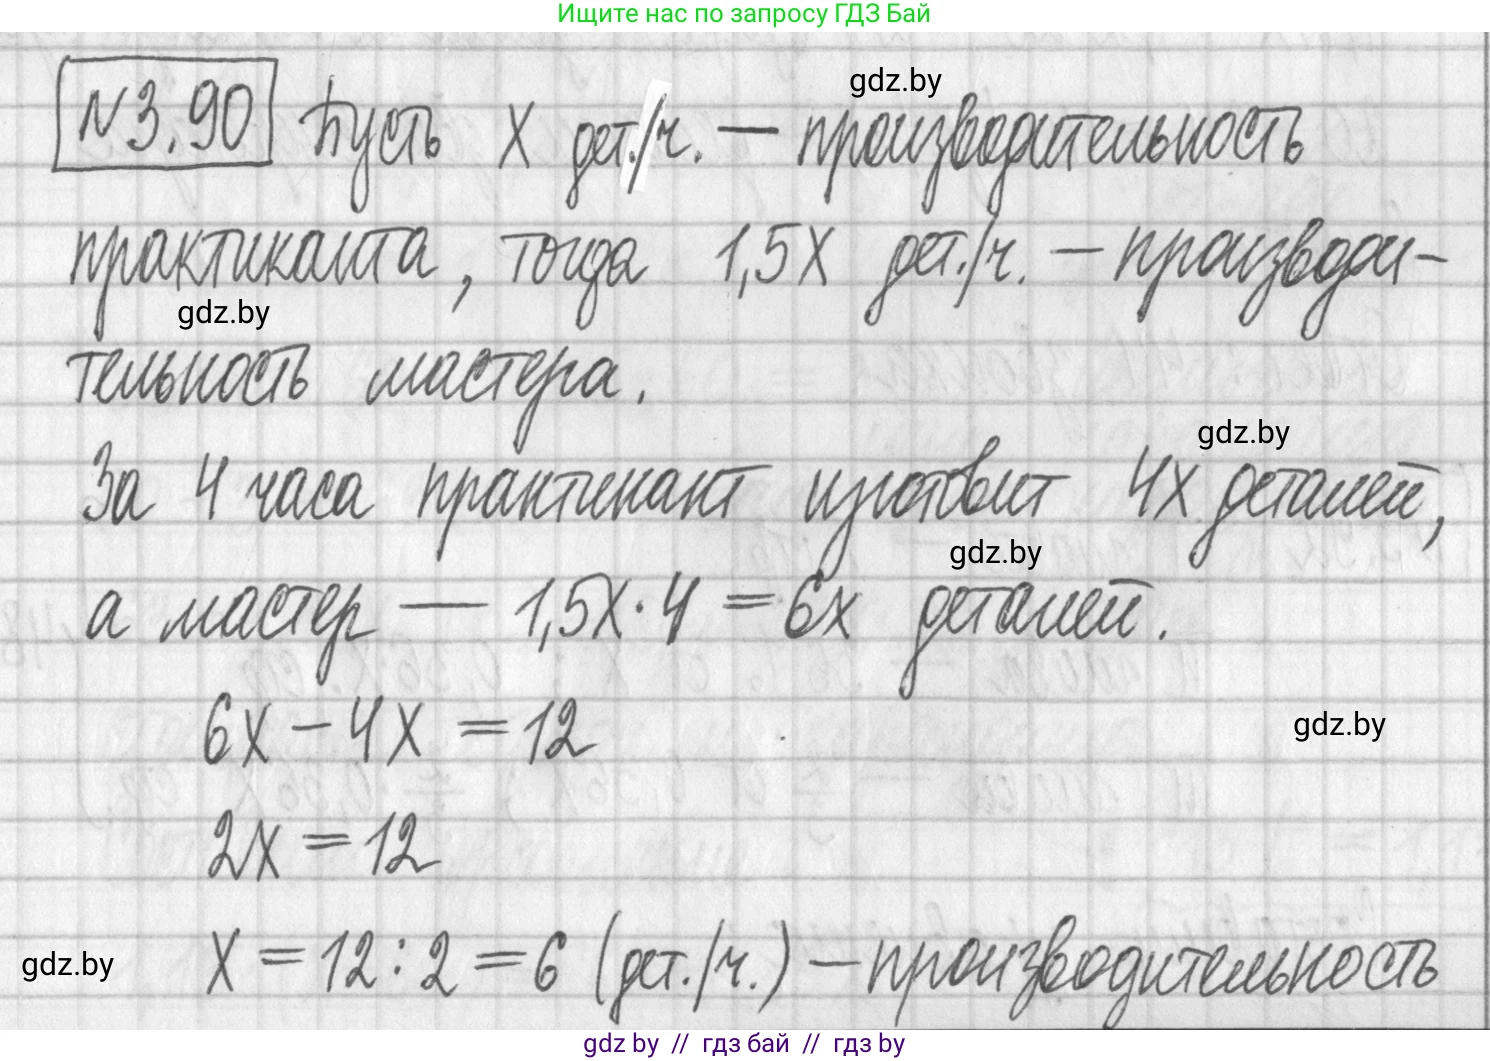 Ищите нас по запросу ГДЗ Бай
gdz.by
№3.90 Пусть x дет./ч. — производительность
практиканта, тогда 1,5x дет./ч. — производи-
gdz.by
тельность мастера.
gdz.by
За 4 часа практикант изготовит 4x деталей,
gdz.by
а мастер — 1,5x · 4 = 6x деталей.
6x − 4x = 12
gdz.by
2x = 12
x = 12 : 2 = 6 (дет./ч.) — производительность
gdz.by
gdz by // гдз бай // гдз by